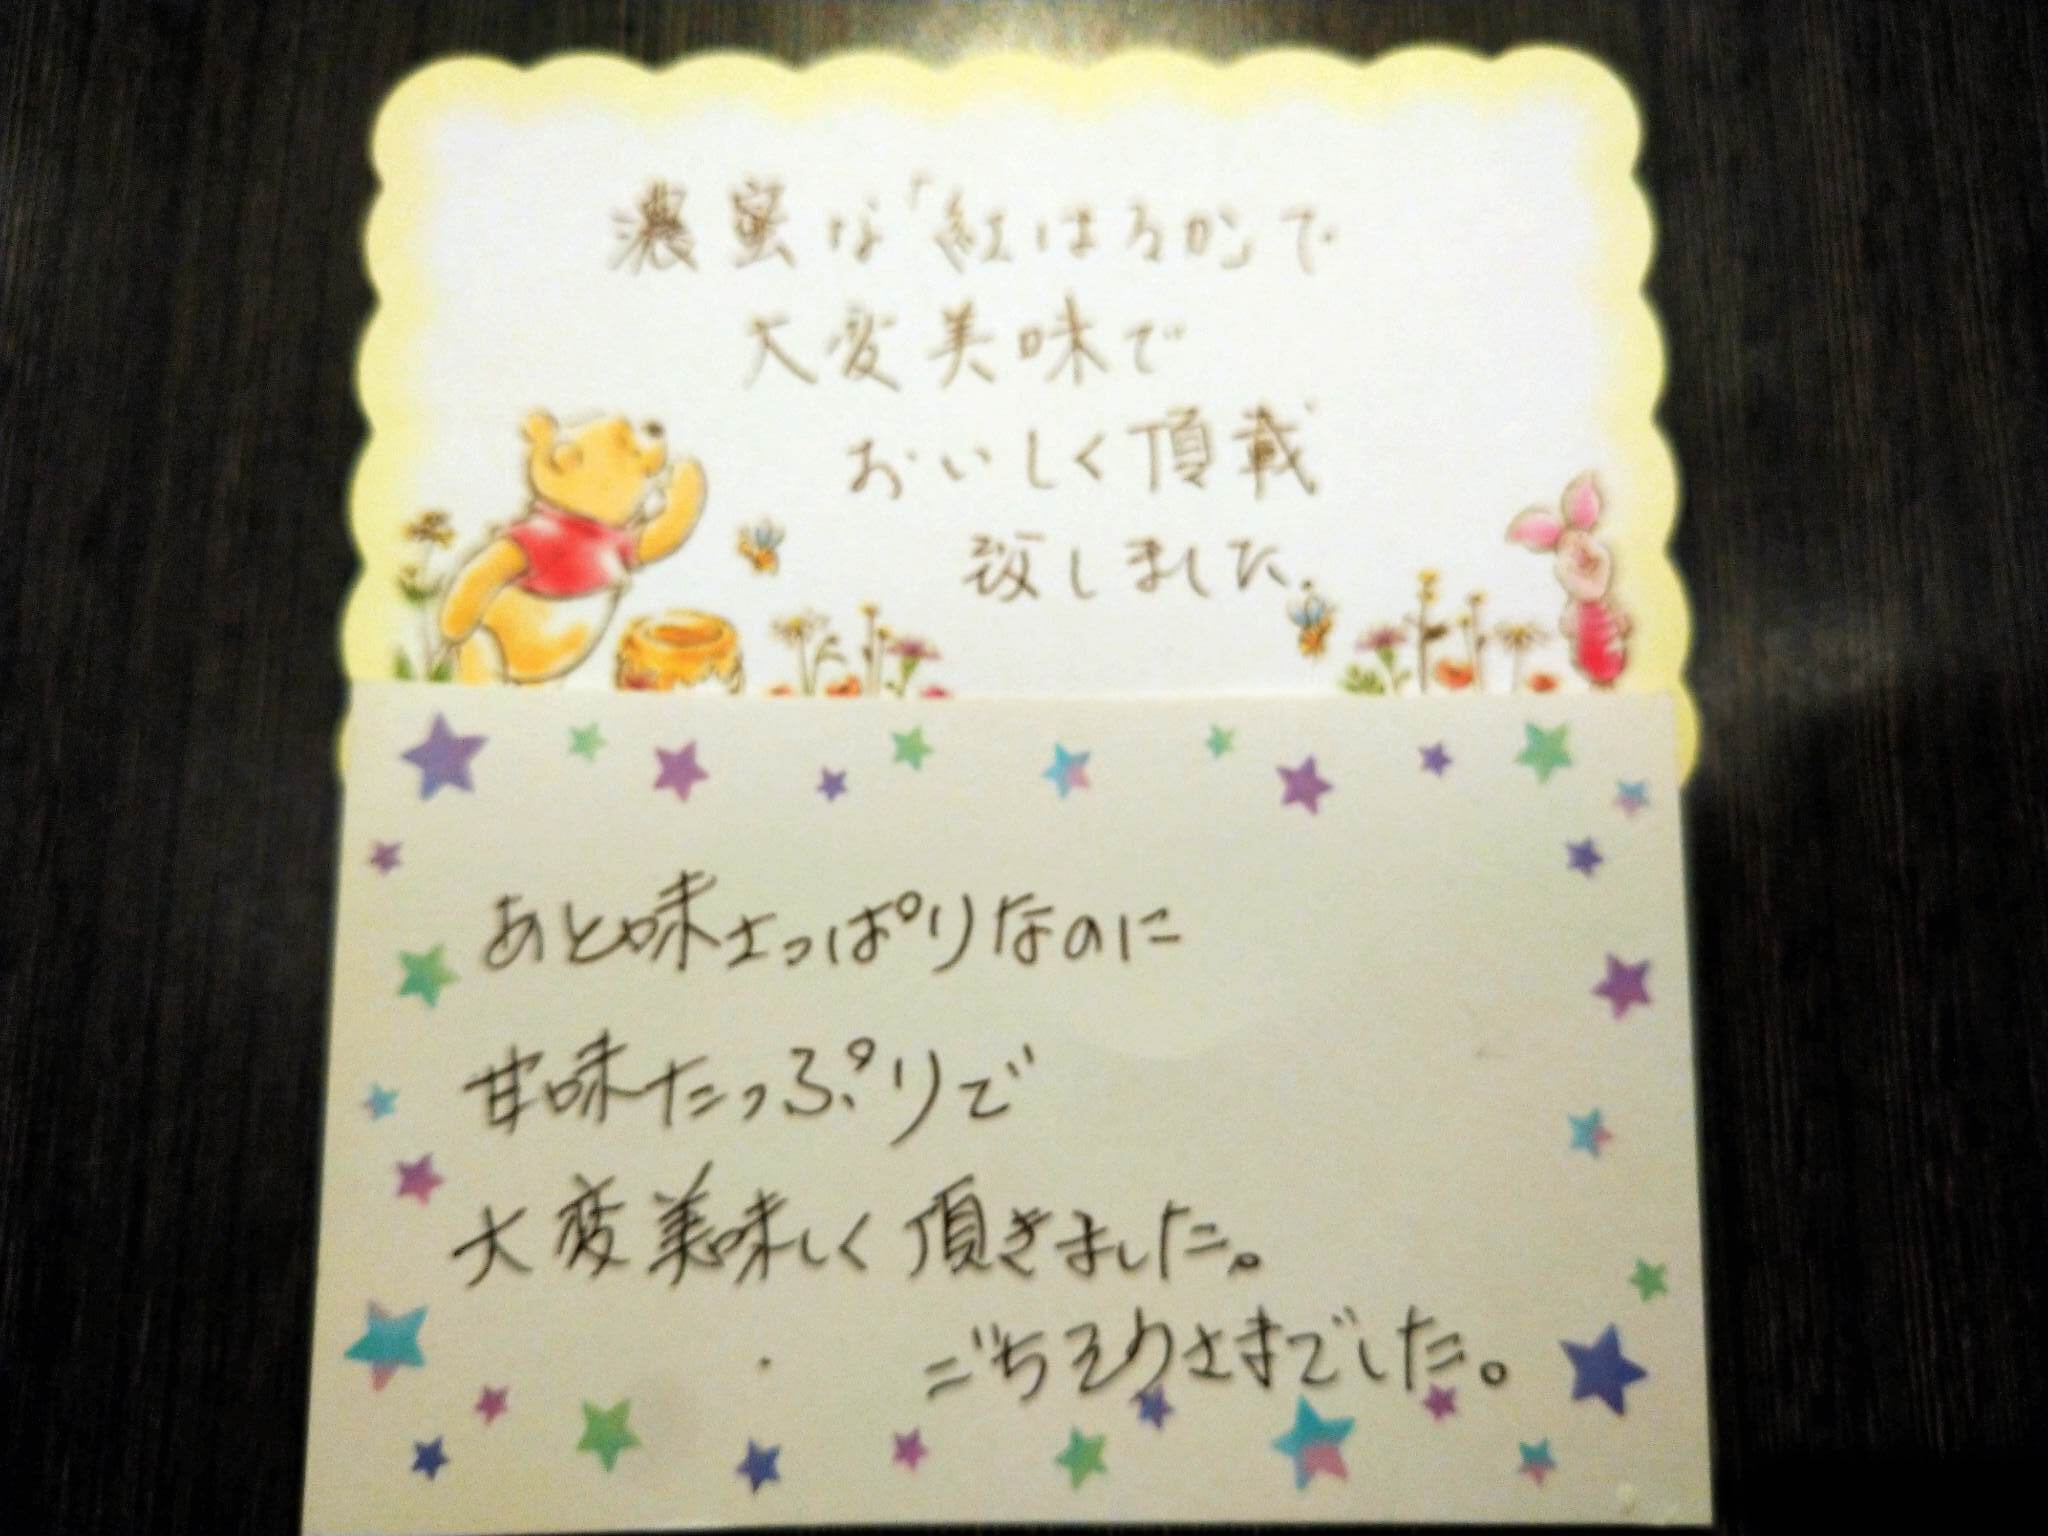 濃蜜な「紅はるか」で
大変美味で
おいしく頂載
致しました.
あと味さっぱりなのに
甘味たっぷりで
大変美味しく頂きました。
ごちそうさまでした。